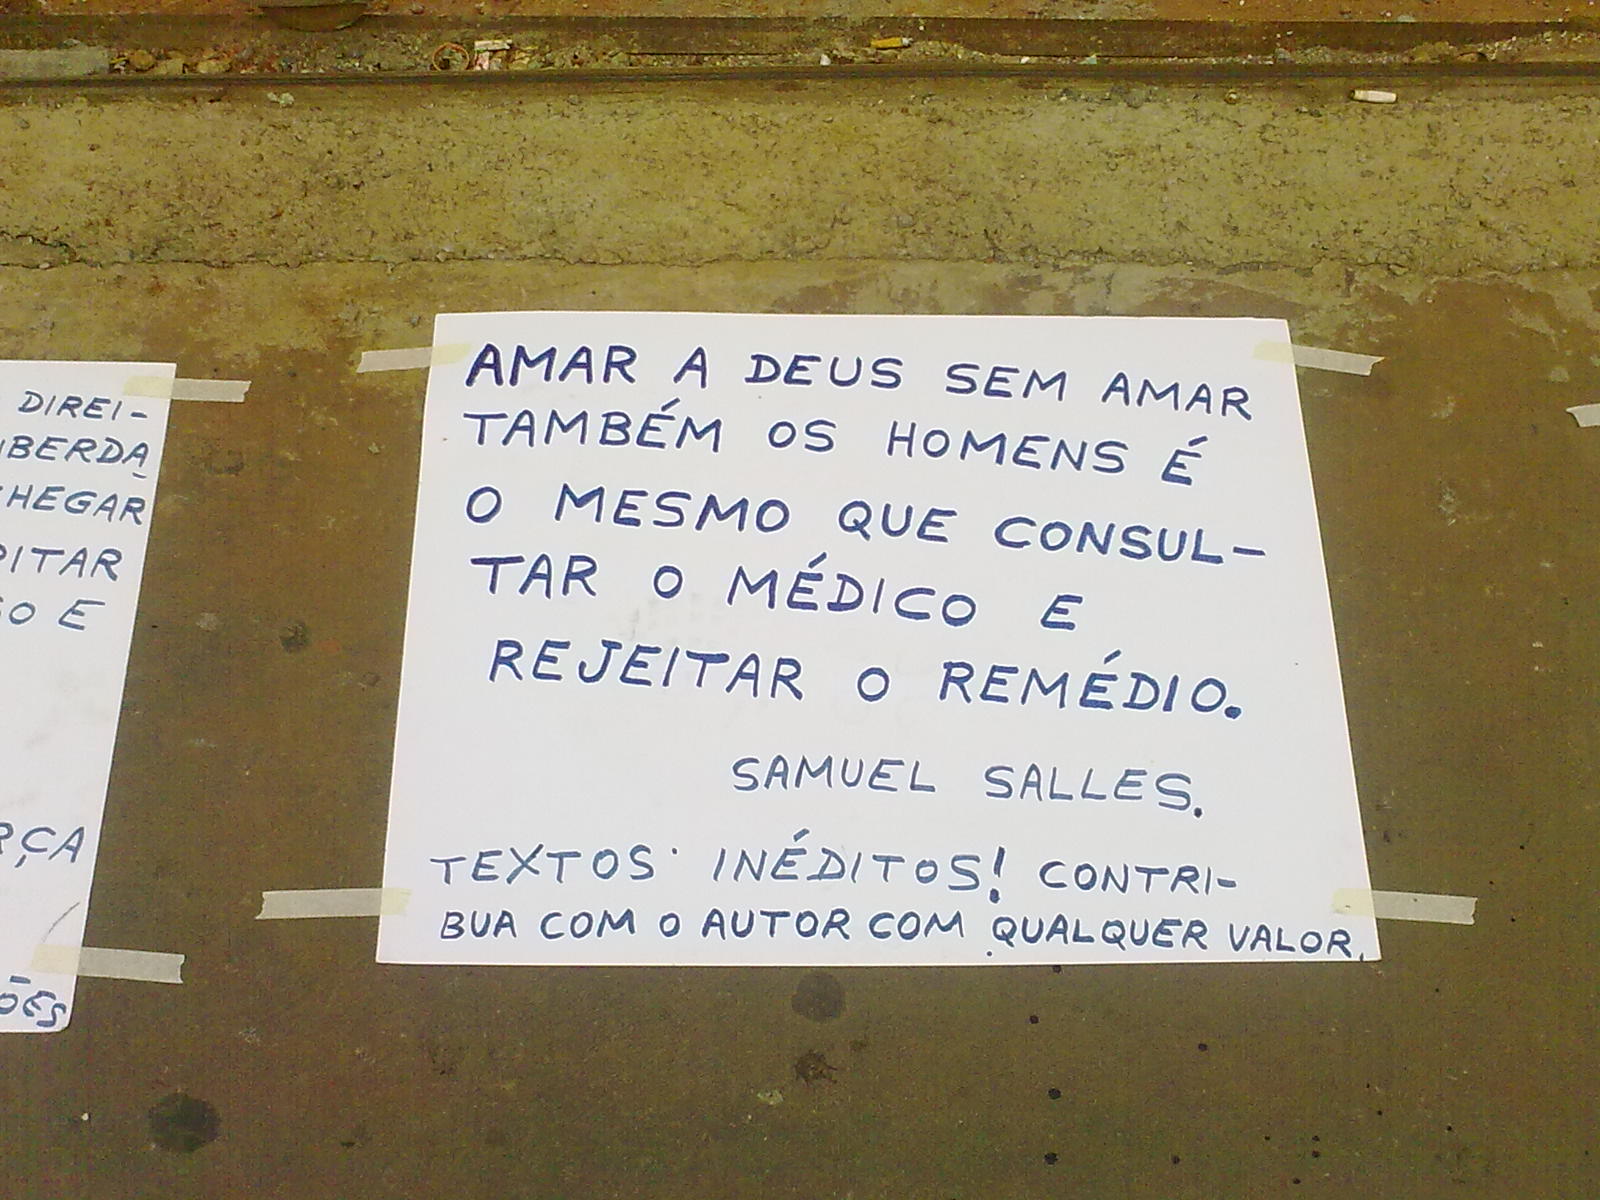 DIREI-
BERDA
HEGAR
DITAR
O E
RÇA
ÕES
AMAR A DEUS SEM AMAR
TAMBÉM OS HOMENS É
O MESMO QUE CONSUL-
TAR O MÉDICO E
REJEITAR O REMÉDIO.
SAMUEL SALLES.
TEXTOS INÉDITOS! CONTRI-
BUA COM O AUTOR COM QUALQUER VALOR.